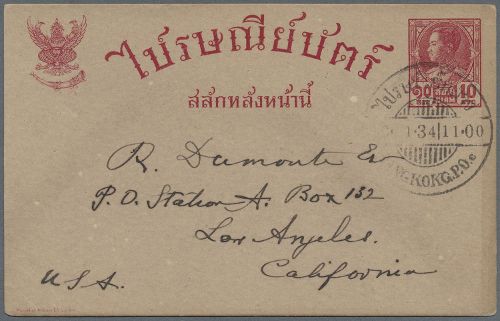 ไปรษณีย์บัตร
สลักหลังหน้านี้
๑๐ 10
1·34 11·00
KOKG.P.O.
R. Dumonte Esq
P.O. Station A. Box 132
Los Angeles.
California
U.S.A.